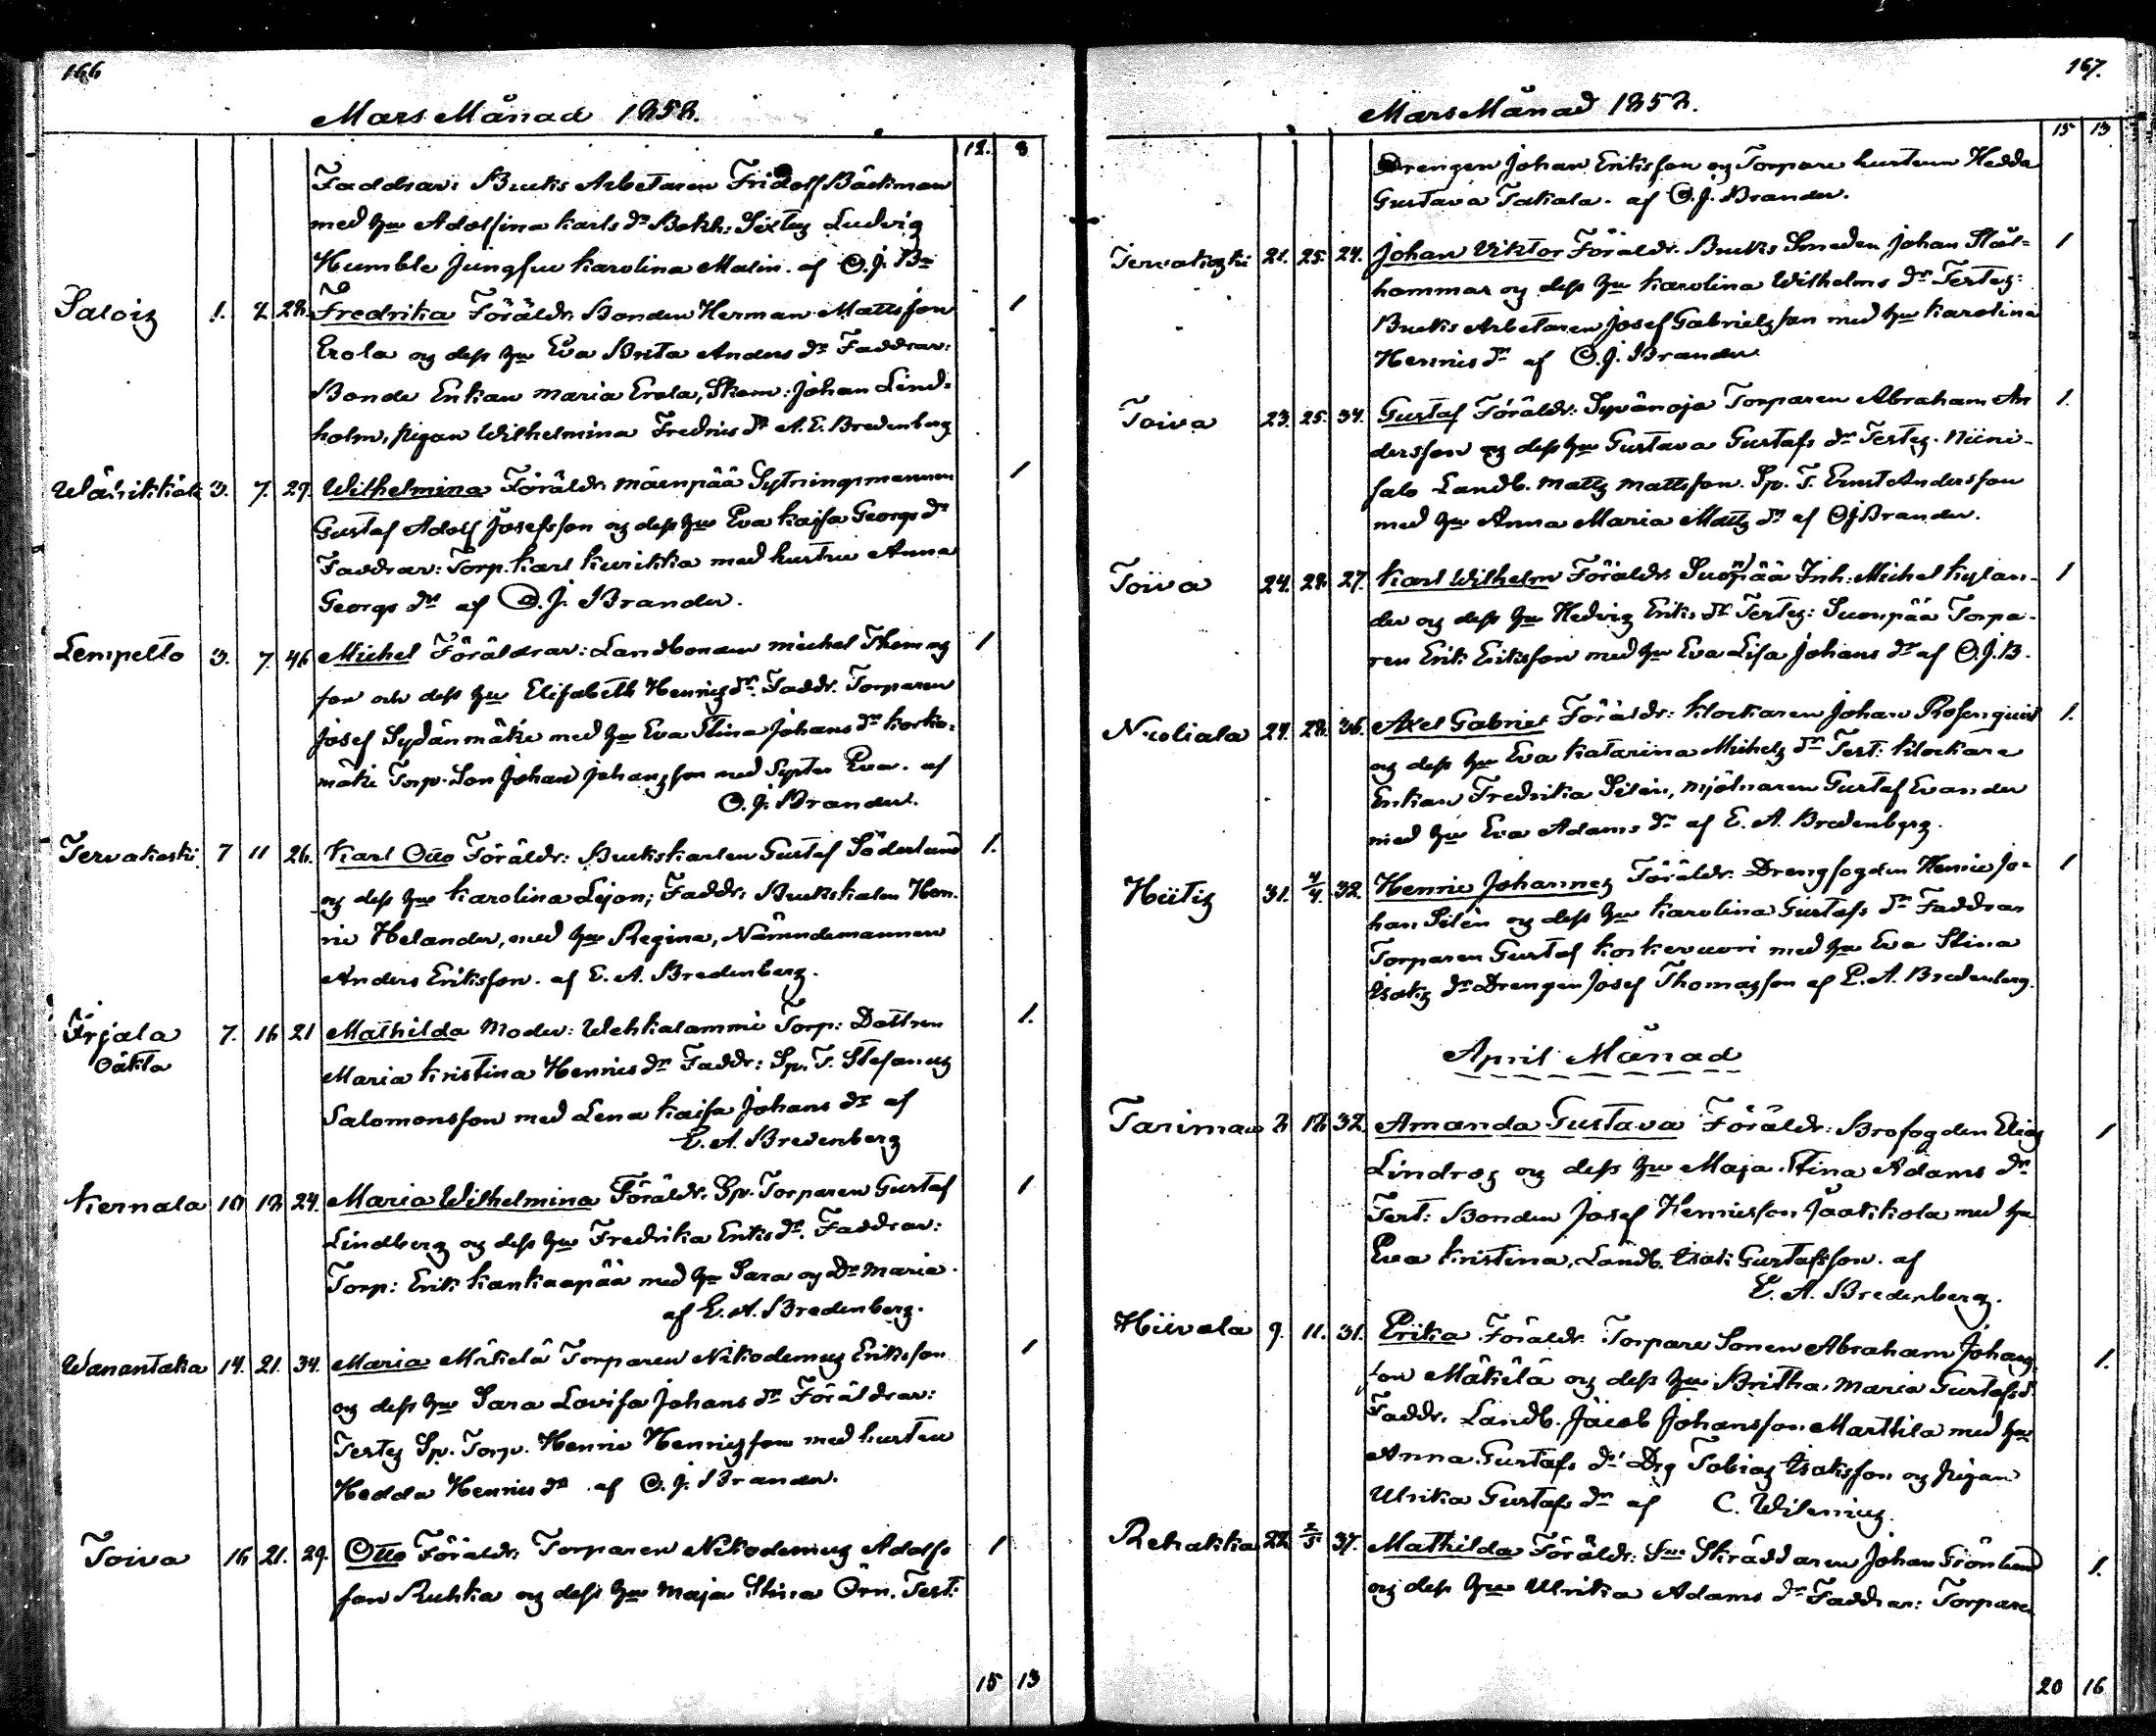 166
Mars Månad 1858.
12. 8
Faddrar: Bruks Arbetaren Fridolf Bäckman
med hu Adolfina Karls dr Bokh: Sixtus Ludvig
Humble Jungfru Karolina Malin. af O. J. Br
Salois 1. 7. 28. Fredrika Föräldr: Bonden Herman Mattsson 1
Erola og dess hu Eva Brita Anders dr Faddrar:
Bonde Enkan Maria Erola, Skom: Johan Lind-
holm, pigan Wilhelmina Fredrics dr A. E. Bredenberg
3. 7. 29. Wilhelmina Föräldr: Mäenpää Sytningsmannen 1
Gustaf Adolf Josefsson og dess hu Eva Kajsa Georgs dr
Faddrar: Torp. Karl Kurikka med hustru Anna
Georgs dr af O. J. Brander.
Lempelto 3. 7. 46 Michel Föräldrar: Landbonden Michel Thomas 1
son och dess hu Elisabeth Henrics dr. Faddr. Torparen
Josef Sydänmäki med hu Eva Stina Johans dr Korke-
mäki Torp. Son Johan Johansson med Syster Eva. af
O. J. Brander.
Tervakoski 7 11 26. Karl Otto Föräldr: Brukskarlen Gustaf Söderlund 1.
og dess hu Karolina Lejon; Faddr: Brukskarlen Hen-
ric Helander, med hu Regina, Nämndemannen
Anders Eriksson. af E. A. Bredenberg.
Irjala 7. 16 21 Mathilda Moder: Wehkalammi Torp: Dottren 1.
Oäkta
Maria Kristina Henrics dr Faddr: Sp. T. Stefanus
Salomonsson med Lena Kajsa Johans dr af
E. A. Bredenberg
Kernala 10 12 24. Maria Wilhelmina Föräldr. Sp. Torparen Gustaf 1
Lindberg og dess hu Fredrika Eriks dr. Faddrar:
Torp: Erik Kankaapää med hu Sara og Dr Maria.
af E. A. Bredenberg.
Wanantaka 14. 21. 34. Maria Mäkelä Torparen Nikodemus Eriksson 1
og dess hu Sara Lovisa Johans dr Föräldrar:
Testes Sp. Torp. Henric Henricsson med hustru
Hedda Henrics dr af O. J. Brander.
Toiva 16 21. 29. Otto Föräldr: Torparen Nikodemus Adolfs 1
son Ruhka og dess hu Maja Stina Örn. Test:
15 13
167.
Mars Månad 1858.
15 13
Drengen Johan Eriksson og Torpare hustrun Hedda
Gustava Takala. af O. J. Brander.
Tervakoski 21. 25. 24. Johan Viktor Föräldr. Bruks Smeden Johan Stål- 1
hammar og dess hu Karolina Wilhelms dr Testes:
Bruks Arbetaren Josef Gabrielsson med hu Karolina
Henrics dr af O. J. Brander.
Toiva 23. 25. 34. Gustaf Föräldr: Syvänoja Torparen Abraham An 1.
dersson og dess hu Gustava Gustafs dr Testes. Niini-
salo Landb. Matts Mattsson. Sp. T. Ernst Andersson
med hu Anna Maria Matts dr af O J Brander.
Toiva 24. 28. 27. Karl Wilhelm Föräldr. Suonpää Inh: Michel Kylan- 1
der og dess hu Hedvig Eriks dr Testes: Suonpää Torpa-
ren Erik Eriksson med hu Eva Lisa Johans dr af O. J. B.
Nuoliala 24. 28. 36. Axel Gabriel Föräldr: Klockaren Johan Rosenqvist 1.
og dess hu Eva Katarina Michels dr Test: Klockare
Enkan Fredrika Silén, Mjölnaren Gustaf Evander
med hu Eva Adams dr af E. A. Bredenberg.
31. 4/4. 32. Henric Johannes Föräldr. Drengfogden Henric Jo- 1
han Silén og dess hu Karolina Gustafs dr Faddrar
Torparen Gustaf Korkevuori med hu Eva Stina
Isaks dr Drengen Josef Thomasson af E. A. Bredenberg.
April Månad
2 12 32. Amanda Gustava Föräldr: Brofogden Elias 1
Lindros og dess hu Maja Stina Adams dr
Test: Bonden Josef Henricsson Jaakkola med hu
Eva Kristina, Landb. Isak Gustafsson. af
E. A. Bredenberg.
9. 11. 31. Erika Föräldr. Torpare Sonen Abraham Johans 1.
son Mäkilä og dess hu Britha Maria Gustafsd.
Faddr. Landb. Jacob Johansson Marttila med hu
Anna Gustafs dr Drg Tobias Isaksson og pigan
Ulrika Gustafs dr af C. Wilenius.
Rehakka 22 2/5 37. Mathilda Föräldr: Skräddaren Johan Grönlund 1.
og dess hu Ulrika Adams dr Faddrar: Torpare
20 16